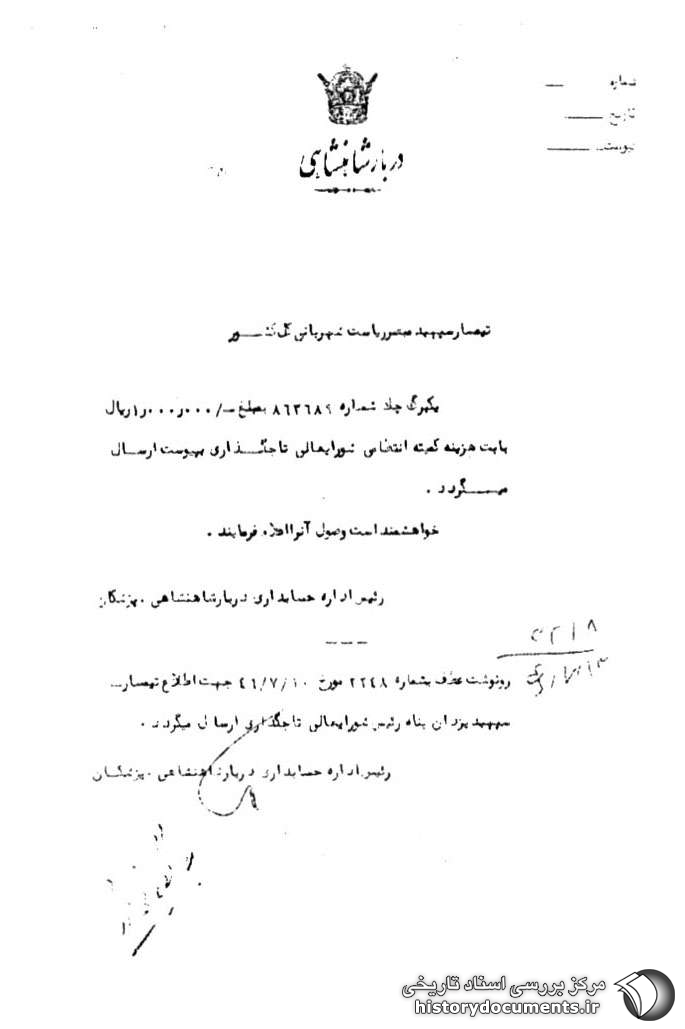 شماره
تاریخ
پیوست
دربار شاهنشاهی
تیمسار سپهبد مبصر ریاست شهربانی کل کشور
یکبرگ چک شماره ۸۶۳۶۸۹ بمبلغ -/۰۰۰ر۰۰۰ر۱ ریال
بابت هزینه کمیته انتظامی شورایعالی تاجگذاری بپیوست ارسال
میگردد .
خواهشمند است وصول آنرا اعلام فرمایند .
رئیس اداره حسابداری دربار شاهنشاهی . پزشکان
---
۵۲۱۸
رونوشت عطف بشماره ۲۲۴۸ مورخ ۴۶/۷/۱۰ جهت اطلاع تیمسار
سپهبد یزدان پناه رئیس شورایعالی تاجگذاری ارسال میگردد .
رئیس اداره حسابداری دربار شاهنشاهی . پزشکان
مرکز بررسی اسناد تاریخی
historydocuments.ir